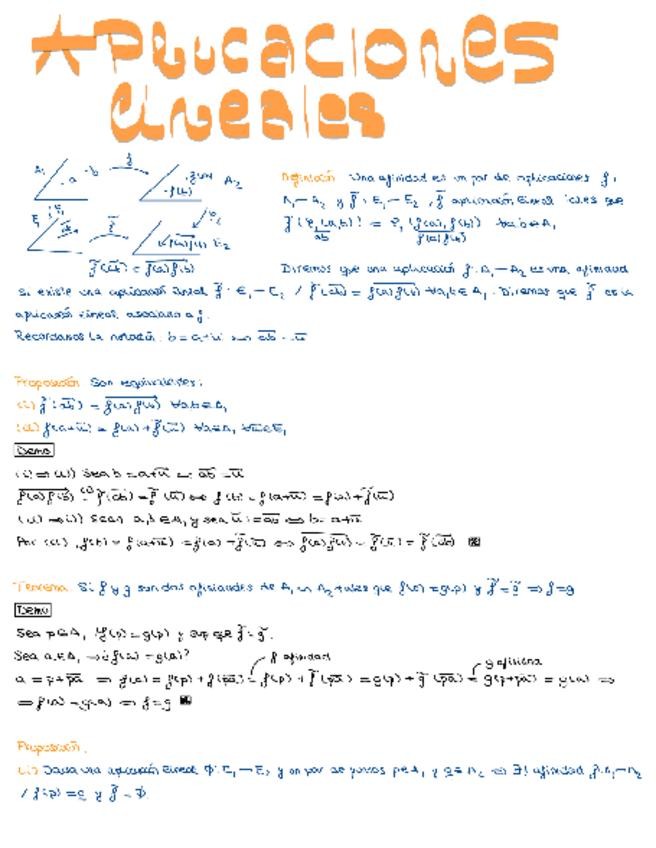 Aplicaciones
lineales
Definición Una afinidad es un par de aplicaciones f:
A₁→A₂ y f⃗: E₁→E₂, f⃗ aplicación lineal tales que
∀a,b∈A₁
f⃗(ab) = f(a)f(b)
Diremos que una aplicación f: A₁→A₂ es una afinidad
si existe una aplicación lineal f⃗: E₁→E₂ / f⃗(ab) = f(a)f(b) ∀a,b∈A₁. Diremos que f⃗ es la
aplicación lineal asociada a f.
Recordamos la notación: b = a+u ⟺ ab = u
Proposición Son equivalentes:
(i) f⃗(ab) = f(a)f(b) ∀a,b∈A₁
(ii) f(a+u) = f(a)+f⃗(u) ∀a∈A₁ ∀u∈E₁
Demo
(i)⇒(ii)) Sea b = a+u ⟺ ab = u
f(a)f(b) = f⃗(ab) = f⃗(u) ⟺ f(b) = f(a+u) = f(a)+f⃗(u)
(ii)⇒(i)) Sean a,b∈A₁ y sea u = ab ⟺ b = a+u
Por (ii), f(b) = f(a+u) = f(a)+f⃗(u) ⟺ f(a)f(b) = f⃗(u) = f⃗(ab)
Teorema Si f y g son dos afinidades de A₁ en A₂ tales que f(p) = g(p) y f⃗ = g⃗ ⇒ f=g
Demo
Sea p∈A₁ / f(p) = g(p) y sup que f⃗ = g⃗.
Sea a∈A₁ ⇒ ¿f(a) = g(a)?
f afinidad
g afinidad
a = p+pa ⇒ f(a) = f(p+pa) = f(p)+f⃗(pa) = g(p)+g⃗(pa) = g(p+pa) = g(a) ⇒
⇒ f(a) = g(a) ⇒ f=g
Proposición.
(i) Dada una aplicación lineal Φ: E₁→E₂ y un par de puntos p∈A₁ y q∈A₂ ⇒ ∃! afinidad f: A₁→A₂
/ f(p) = q y f⃗ = Φ.